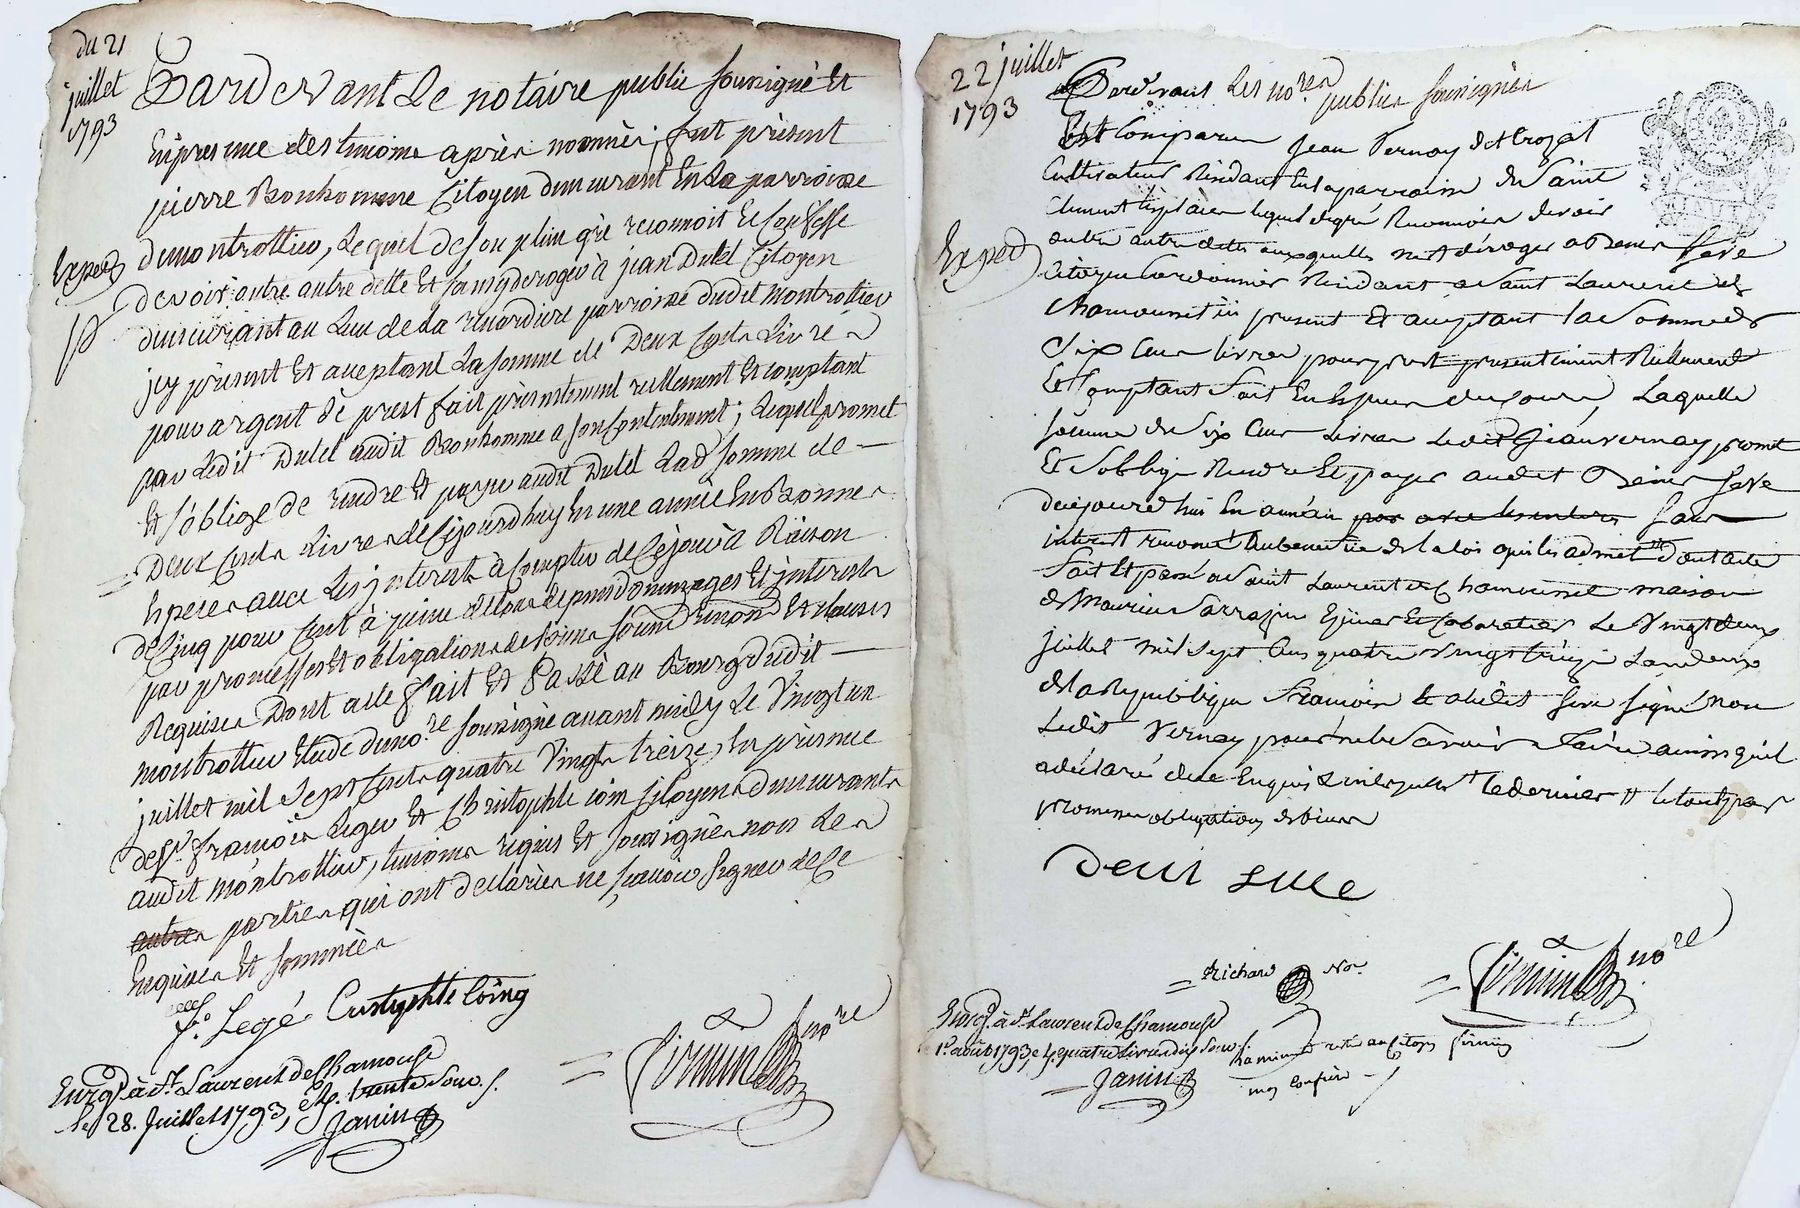 du 21
juillet
1793
Pardevant Le notaire public sousigné Et
En presence des temoins après nommés, fut présent
pierre Bonhomme Citoyen demeurant En La parroisse
de montrottier, Lequel de son plein gré reconnoit Et Confesse
Exped
devoir outre autre dette Et sans y deroger à jean Dutel Citoyen
demeurant au Lieu de La renardiere parroisse dudit montrottier
jcy présent Et aceptant La somme de Deux Cents Livres
pour argent de prest fait présentement réellement Et comptant
par Ledit Dutel audit Bonhomme a son Contentement; Lequel promet
Et s'oblige de rendre Et payer audit Dutel Lad somme de
Deux Cents Livres de Cejourdhuy En une année En Bonnes
Especes avec Les jnterests à Compter de Ce jour à Raison
de Cinq pour Cent à peine de tous depens dommages Et jnterests
par promesses Et obligations de Biens soumi renon Et clauses
Requises Dont acte fait Et Passé au Bourg dudit
montrottier Etude du no.re sousigné avant midy Le Vingt un
juillet mil Sept Cents quatre Vingts treize, En présence
de Sr. francois Leger Et Christophle coin Citoyens demeurants
audit montrottier, temoins requis Et sousignés non Les
autres parties qui ont declarées ne scavoir signer de Ce
Enquises Et sommées
f.s Legé Cristophle Coing
Enrg. à St. Laurent de Chamousse
le 28. Juillet 1793, trente sous.
Janin
no.re
22 juillet
1793
Pardevant Les no.res publics sousignés
Est Comparu Jean Vernay dit Crozat
Cultivateur Résidant En la parroisse de Saint
Clement Lesplaces lequel de gré Reconnoit devoir
Exped
outre autre dettes auxquelles n'est dérogé a Denis fave
Citoyen Cordonnier Résidant a Saint Laurent de
Chamousset ici présent Et aceptant la Somme de
Six Cens livres pour prest presentement Réellement
Et Comptant Fait En Espece du jour, Laquelle
somme de Six Cens Livres Ledit Jean vernay promet
Et Soblige Rendre Et payer audit Denis fave
dicejourd'hui En un an par avec les interets sans
interest renoncé Au benefice de la loi qui les admet Dont acte
Fait Et passé a Saint Laurent de Chamousset maison
de Maurice Sarrazin Epicier Et Cabaretier Le Vingt deux
Juillet mil Sept Cens quatre Vingt treize L'an deux
de la Republique françoise Et a ledit fave signé non
Ledit Vernay pour ne le savoir Faire ainsi qu'il
a déclaré de ce Enquis & interpellé le dernier Et le tout par
promesse obligation de biens
Richard No.
no.re
Enrg. à St. Laurent de Chamousse
1r. août 1793, quatre livres dix sous
Janin
la minute restée au Citoyen Firmin
mon Confrère